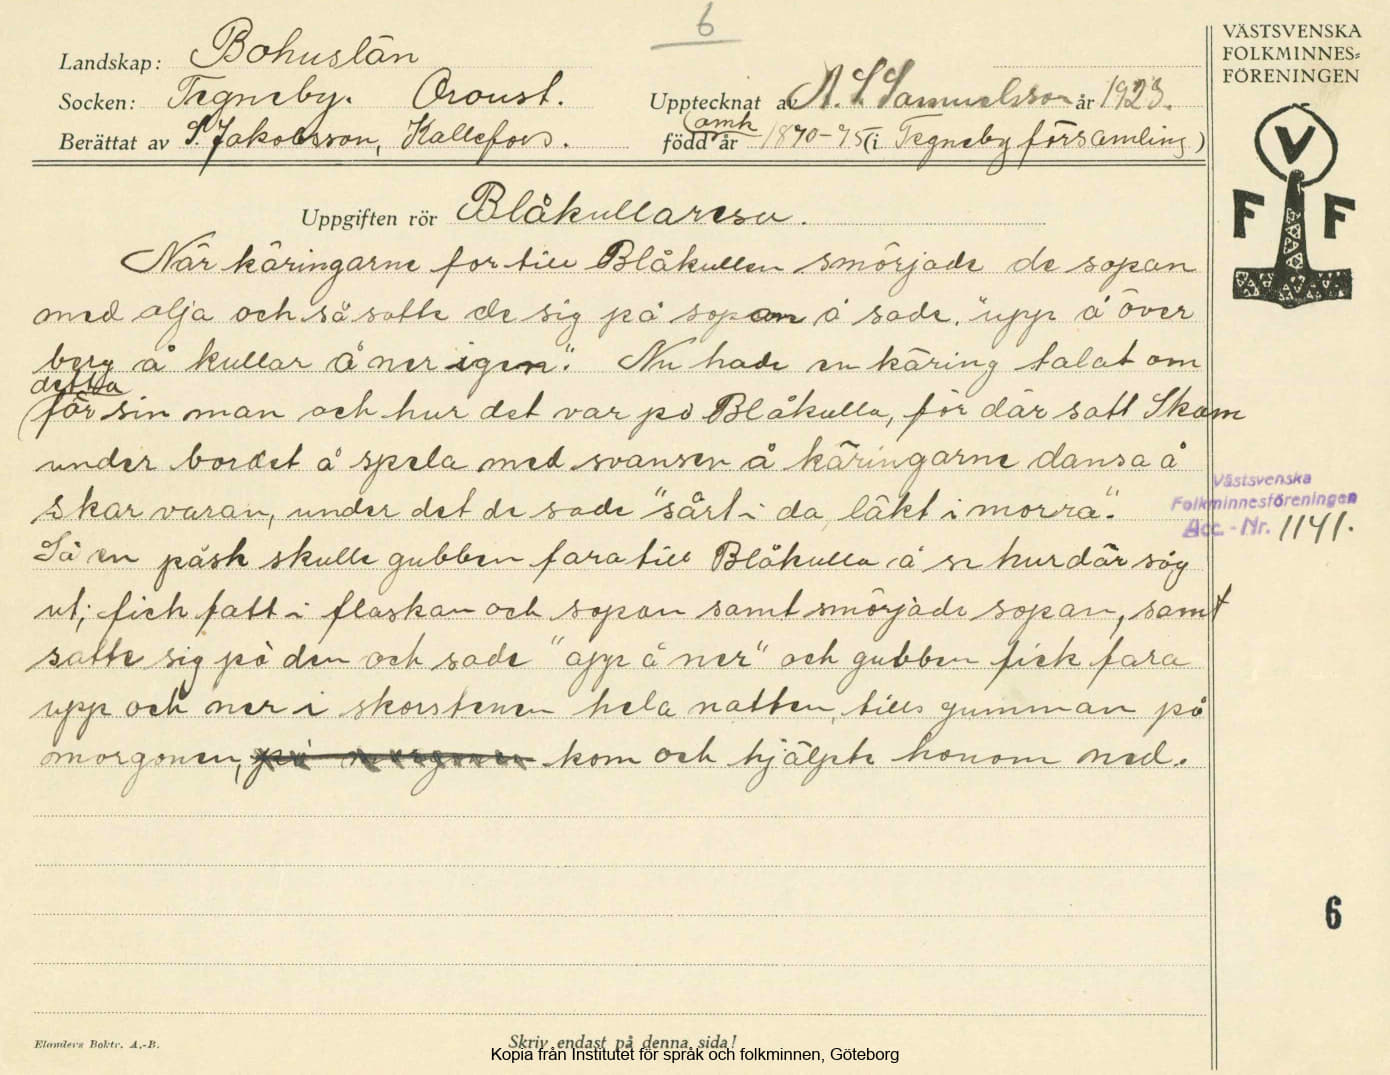 6
VÄSTSVENSKA
FOLKMINNES=
FÖRENINGEN
V
F F
Landskap: Bohuslän
Socken: Tegneby. Oroust. Upptecknat av A. S. Samuelsson år 1923.
Berättat av S. Jakobsson, Kallefors. född år (omk 1870-75 (i Tegneby församling)
Uppgiften rör Blåkullaresa.
När käringarne for till Blåkullen smörjade de sopan
med olja och så satte de sig på sopan å sade. "upp å över
berg å kullar å ner igen". Nu hade en käring talat om
detta
för sin man och hur det var på Blåkulla, för där satt Skam
under bordet å spela med svansen å käringarne dansa å
skar varan, under det de sade "sårt i da, läkt i morra".
Så en påsk skulle gubben fara till Blåkulla å se hur där såg
ut; fick fatt i flaskan och sopan samt smörjade sopan, samt
satte sig på den och sade "opp å ner" och gubben fick fara
upp och ner i skorstenen hela natten, tills gumman på
morgonen, på morgonen kom och hjälpte honom ned.
Västsvenska
Folkminnesföreningen
Acc.-Nr. 1141.
6
Elanders Boktr. A.-B.
Skriv endast på denna sida!
Kopia från Institutet för språk och folkminnen, Göteborg